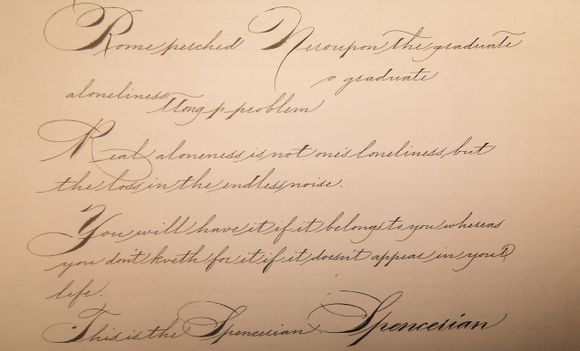 Rome perched Neroupon the graduate
graduate
aloneliness
Tlong p problem
Real aloneness is not one's loneliness, but
the loss in the endless noise.
You will have it if it belongs to you whereas
you don't kveth for it if it doesn't appear in your
life.
This is the Spencerian Spencerian